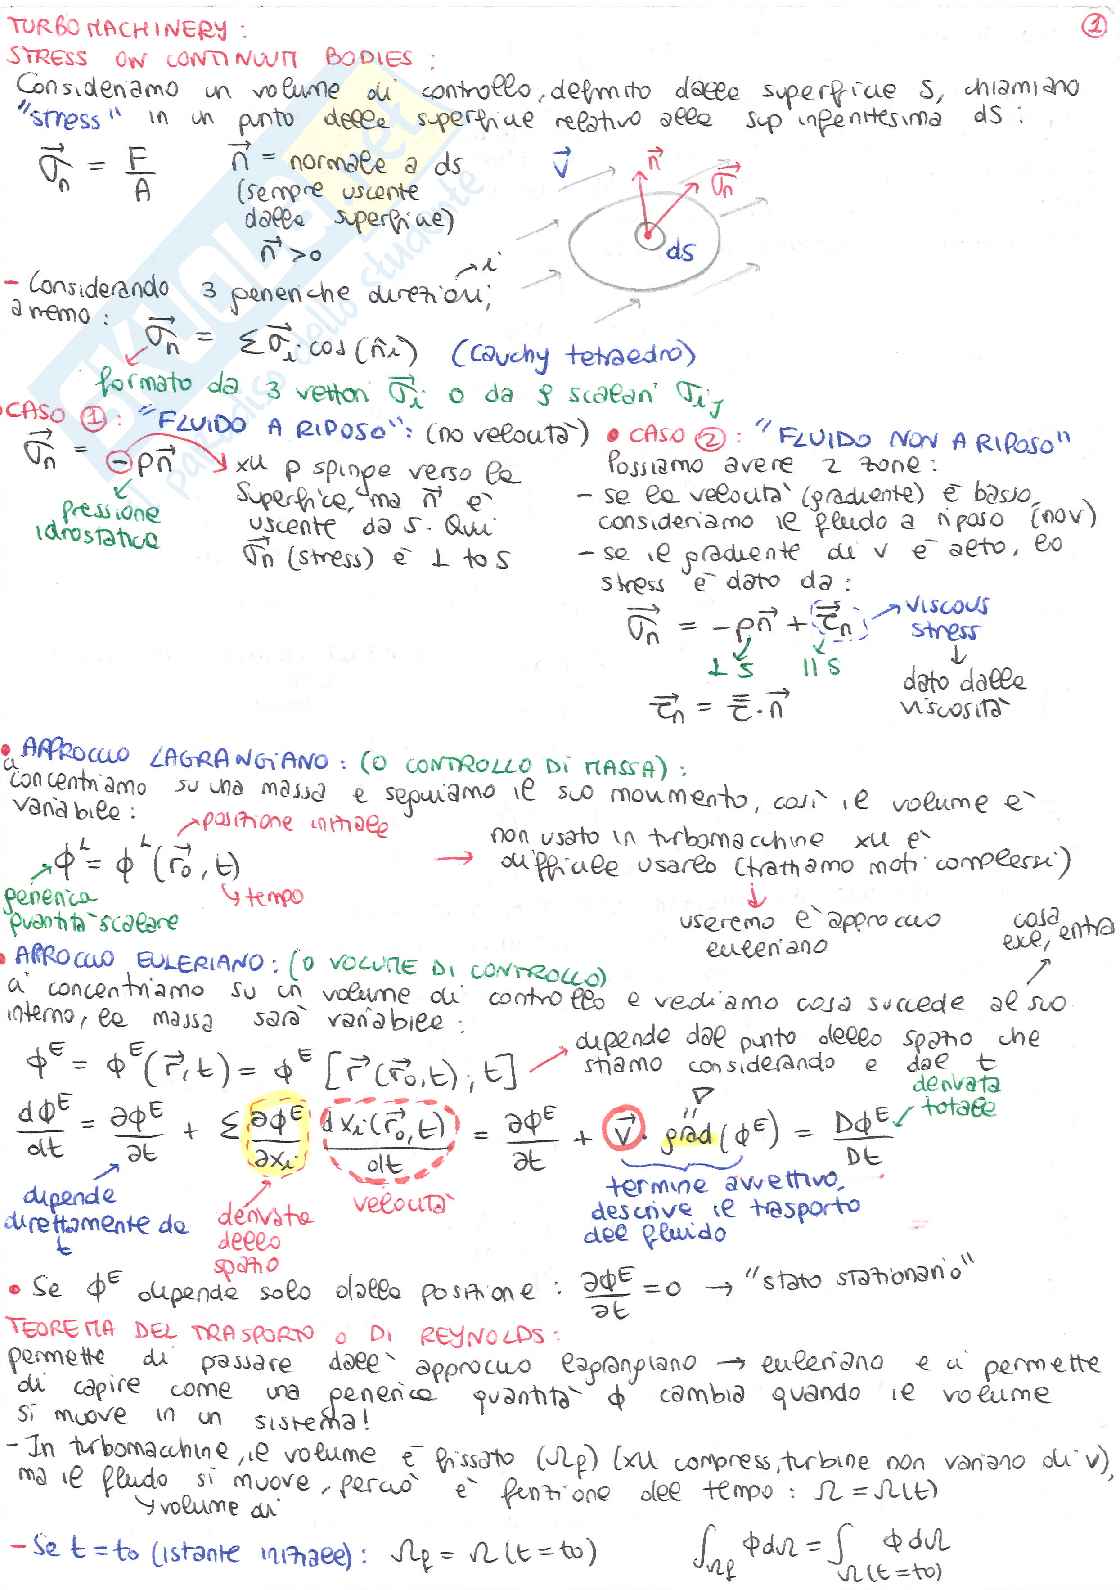 1
TURBOMACHINERY:
STRESS ON CONTINUUM BODIES:
Consideriamo un volume di controllo, definito dalla superficie S, chiamiamo
"stress" in un punto della superficie relativo alla sup infinitesima dS:
σn = F/A
n = normale a ds
(sempre uscente
dalla superficie)
n > 0
V n σn
dS
- Considerando 3 generiche direzioni, i
avremo: σn = Σ σi · cos(n̂i) (Cauchy tetraedro)
formato da 3 vettori σi o da 9 scalari σij
• CASO 1: "FLUIDO A RIPOSO": (no velocità)
σn = - pn
xu p spinge verso la
superficie, ma n è
uscente da S. Qui
σn (stress) è ⊥ to S
pressione
idrostatica
• CASO 2: "FLUIDO NON A RIPOSO"
Possiamo avere 2 zone:
- se la velocità (gradiente) è basso,
consideriamo il fluido a riposo (no v)
- se il gradiente di v è alto, lo
stress è dato da:
σn = -pn + τn
⊥ S // S
viscous
stress
dato dalla
viscosità
τn = τ · n
• APPROCCIO LAGRANGIANO: (O CONTROLLO DI MASSA):
ci concentriamo su una massa e seguiamo il suo movimento, così il volume è
variabile:
posizione iniziale
ϕᴸ = ϕᴸ (r₀, t)
tempo
generica
quantità scalare
→ non usato in turbomacchine xu è
difficile usarlo (trattiamo moti complessi)
useremo l'approccio
euleriano
• APPROCCIO EULERIANO: (O VOLUME DI CONTROLLO)
ci concentriamo su un volume di controllo e vediamo cosa succede al suo
interno, la massa sarà variabile:
cosa
esce, entra
ϕᴱ = ϕᴱ(r, t) = ϕᴱ [r(r₀, t); t]
dipende dal punto dello spazio che
stiamo considerando e dal t
dϕᴱ/dt = ∂ϕᴱ/∂t + Σ ∂ϕᴱ/∂xi dxi(r₀, t)/dt = ∂ϕᴱ/∂t + V · grad(ϕᴱ) = Dϕᴱ/Dt
∇
=
derivata
totale
dipende
direttamente da
t
derivata
dello
spazio
velocità
termine avvettivo,
descrive il trasporto
del fluido
• Se ϕᴱ dipende solo dalla posizione: ∂ϕᴱ/∂t = 0 → "stato stazionario"
TEOREMA DEL TRASPORTO O DI REYNOLDS:
permette di passare dall' approccio lagrangiano → euleriano e ci permette
di capire come una generica quantità ϕ cambia quando il volume
si muove in un sistema!
- In turbomacchine, il volume è fissato (Ωf) (xu compress, turbine non variano di v),
ma il fluido si muove, perciò è funzione del tempo: Ω = Ω(t)
volume di
- Se t = to (istante iniziale): Ωf = Ω(t = to) ∫Ωf ϕdΩ = ∫Ω(t=to) ϕdΩ